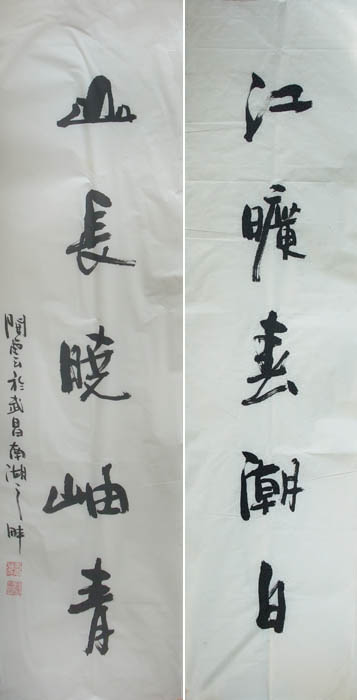 江曠春潮白
山長曉岫青
於武昌南湖之畔